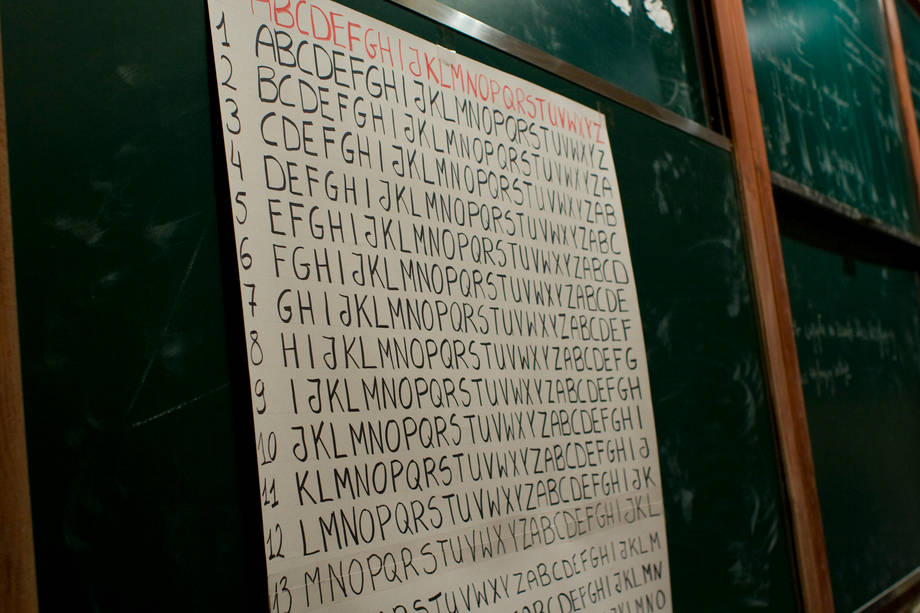 ABCDEFGHIJKLMNOPQRSTUVWXYZ
1 ABCDEFGHIJKLMNOPQRSTUVWXYZ
2 BCDEFGHIJKLMNOPQRSTUVWXYZA
3 CDEFGHIJKLMNOPQRSTUVWXYZAB
4 DEFGHIJKLMNOPQRSTUVWXYZABC
5 EFGHIJKLMNOPQRSTUVWXYZABCD
6 FGHIJKLMNOPQRSTUVWXYZABCDE
7 GHIJKLMNOPQRSTUVWXYZABCDEF
8 HIJKLMNOPQRSTUVWXYZABCDEFG
9 IJKLMNOPQRSTUVWXYZABCDEFGH
10 JKLMNOPQRSTUVWXYZABCDEFGHI
11 KLMNOPQRSTUVWXYZABCDEFGHIJ
12 LMNOPQRSTUVWXYZABCDEFGHIJK
13 MNOPQRSTUVWXYZABCDEFGHIJKL
STUVWXYZABCDEFGHIJKLM
HIJKLMN